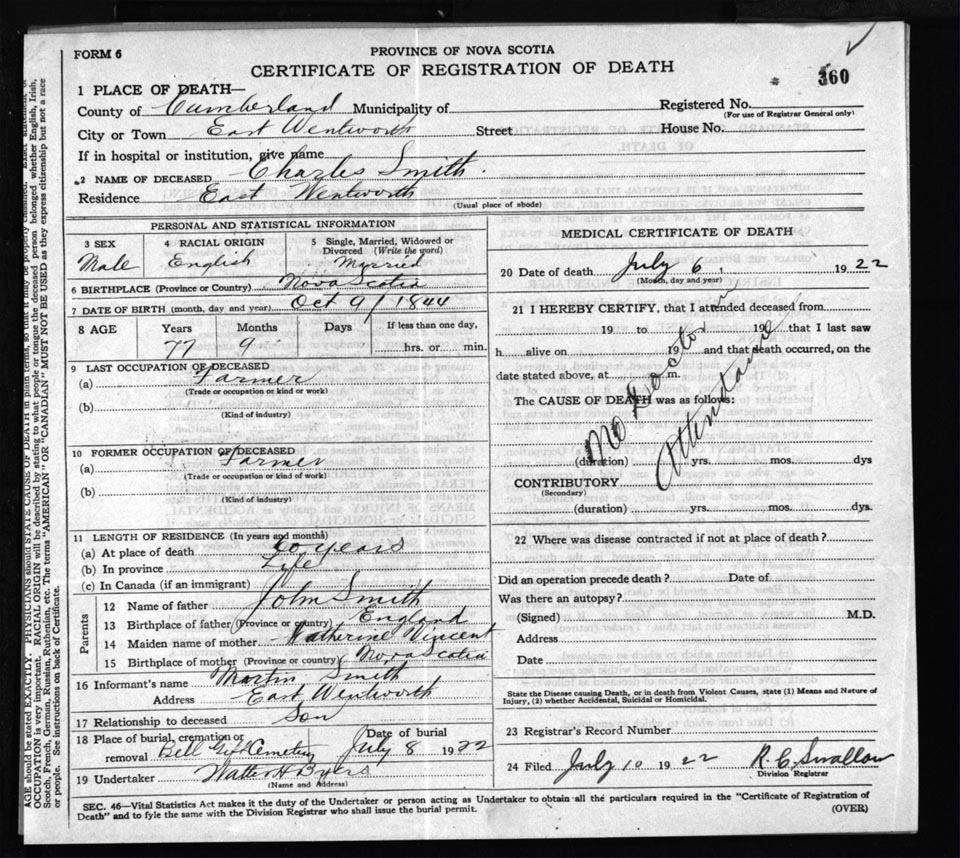 FORM 6
PROVINCE OF NOVA SCOTIA
CERTIFICATE OF REGISTRATION OF DEATH
360
1 PLACE OF DEATH—
County of Cumberland Municipality of
Registered No.
(For use of Registrar General only)
City or Town East Wentworth Street House No.
If in hospital or institution, give name
2 NAME OF DECEASED Charles Smith
Residence East Wentworth
(Usual place of abode)
PERSONAL AND STATISTICAL INFORMATION
3 SEX Male
4 RACIAL ORIGIN English
5 Single, Married, Widowed or Divorced (Write the word) Married
6 BIRTHPLACE (Province or Country) Nova Scotia
7 DATE OF BIRTH (month, day and year) Oct 9/1844
8 AGE Years Months Days If less than one day,
77 9 hrs. or min.
9 LAST OCCUPATION OF DECEASED
(a) Farmer
(Trade or occupation or kind or work)
(b)
(Kind of industry)
10 FORMER OCCUPATION OF DECEASED
(a) Farmer
(Trade or occupation or kind of work)
(b)
(Kind of industry)
11 LENGTH OF RESIDENCE (In years and months)
(a) At place of death years
(b) In province Life
(c) In Canada (if an immigrant)
Parents
12 Name of father John Smith
13 Birthplace of father (Province or country) England
14 Maiden name of mother Katherine Vincent
15 Birthplace of mother (Province or country) Nova Scotia
16 Informant's name Martin Smith
Address East Wentworth
17 Relationship to deceased Son
18 Place of burial, cremation or removal Bell Cemetery
Date of burial July 8 1922
19 Undertaker Walter H Byers
(Name and Address)
MEDICAL CERTIFICATE OF DEATH
20 Date of death July 6, 1922
(Month, day and year)
21 I HEREBY CERTIFY, that I attended deceased from
19 to 19 that I last saw
h alive on 19 and that death occurred, on the
date stated above, at m.
The CAUSE OF DEATH was as follows:
No Doctor in
Attendance
(duration) yrs. mos. dys
CONTRIBUTORY
(Secondary)
(duration) yrs. mos. dys.
22 Where was disease contracted if not at place of death?
Did an operation precede death? Date of
Was there an autopsy?
(Signed) M.D.
Address
Date
State the Disease causing Death, or in death from Violent Causes, state (1) Means and Nature of
Injury, (2) whether Accidental, Suicidal or Homicidal.
23 Registrar's Record Number
24 Filed July 10 1922 R. C. Swallow
Division Registrar
SEC. 46—Vital Statistics Act makes it the duty of the Undertaker or person acting as Undertaker to obtain all the particulars required in the "Certificate of Registration of
Death" and to fyle the same with the Division Registrar who shall issue the burial permit.
(OVER)
AGE should be stated EXACTLY. PHYSICIANS should STATE CAUSE OF DEATH in plain terms, so that it may be properly classified. Exact statement of
OCCUPATION is very important. RACIAL ORIGIN will be described by stating to what people or tongue the deceased person belonged whether English, Irish,
Scotch, French, German, Russian, Ruthenian, etc. The terms "AMERICAN" OR "CANADIAN" MUST NOT BE USED as they express citizenship but not a race
or people. See instructions on back of Certificate.